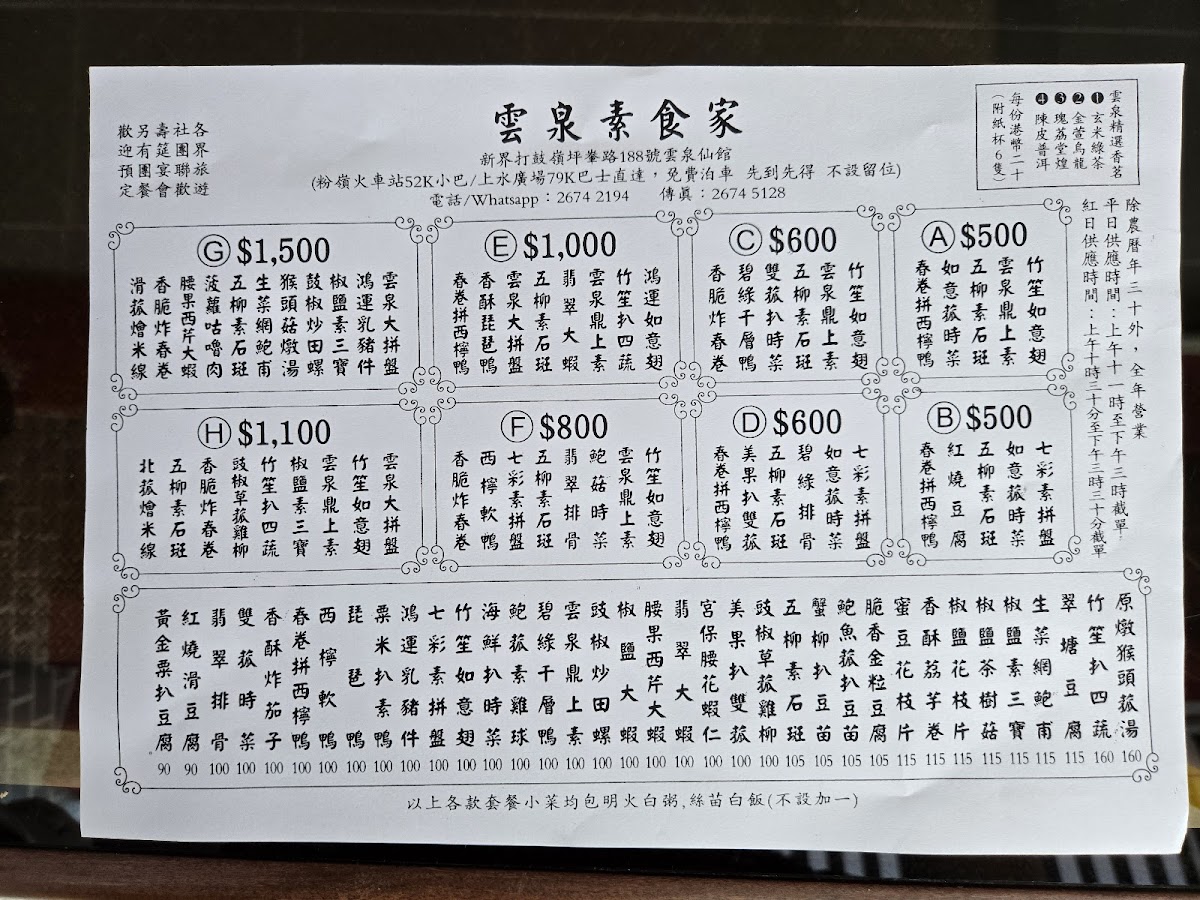 雲泉素食家
新界打鼓嶺坪輋路188號雲泉仙館
(粉嶺火車站52K小巴/上水廣場79K巴士直達，免費泊車 先到先得 不設留位)
電話/Whatsapp：2674 2194 傳真：2674 5128
各界旅遊
社團聯歡
壽筵宴會
另有團餐
歡迎預定
雲泉精選香茗
❶玄米綠茶
❷金萱烏龍
❸瑰荔堂煌
❹陳皮普洱
每份港幣二十
(附紙杯6隻)
除農曆年三十外，全年營業
平日供應時間：上午十一時至下午三時截單
紅日供應時間：上午十時三十分至下午三時三十分截單
Ⓐ $500
竹笙如意翅
雲泉鼎上素
五柳素石斑
如意菰時菜
春卷拼西檸鴨
Ⓑ $500
七彩素拼盤
如意菰時菜
五柳素石斑
紅燒豆腐
春卷拼西檸鴨
Ⓒ $600
竹笙如意翅
雲泉鼎上素
五柳素石斑
雙菰扒時菜
碧綠千層鴨
香脆炸春卷
Ⓓ $600
七彩素拼盤
如意菰時菜
碧綠排骨
五柳素石斑
美果扒雙菰
春卷拼西檸鴨
Ⓔ $1,000
鴻運如意翅
竹笙扒四蔬
雲泉鼎上素
翡翠大蝦
五柳素石斑
雲泉大拼盤
香酥琵琶鴨
春卷拼西檸鴨
Ⓕ $800
竹笙如意翅
雲泉鼎上素
鮑菇時菜
翡翠排骨
五柳素石斑
七彩素拼盤
西檸軟鴨
香脆炸春卷
Ⓖ $1,500
雲泉大拼盤
鴻運乳豬件
椒鹽素三寶
鼓椒炒田螺
猴頭菇燉湯
生菜網鮑甫
五柳素石斑
菠蘿咕嚕肉
腰果西芹大蝦
香脆炸春卷
滑菰燴米線
Ⓗ $1,100
雲泉大拼盤
竹笙如意翅
雲泉鼎上素
椒鹽素三寶
竹笙扒四蔬
豉椒草菰雞柳
香脆炸春卷
五柳素石斑
北菰燴米線
原燉猴頭菰湯 160
竹笙扒四蔬 160
翠塘豆腐 115
生菜網鮑甫 115
椒鹽素三寶 115
椒鹽茶樹菇 115
椒鹽花枝片 115
香酥荔芋卷 115
蜜豆花枝片 115
脆香金粒豆腐 105
鮑魚菰扒豆苗 105
蟹柳扒豆苗 105
五柳素石斑 105
豉椒草菰雞柳 100
美果扒雙菰 100
宮保腰花蝦仁 100
翡翠大蝦 100
腰果西芹大蝦 100
椒鹽大蝦 100
豉椒炒田螺 100
雲泉鼎上素 100
碧綠千層鴨 100
鮑菰素雞球 100
海鮮扒時菜 100
竹笙如意翅 100
七彩素拼盤 100
鴻運乳豬件 100
粟米扒素鴨 100
琵琶鴨 100
西檸軟鴨 100
春卷拼西檸鴨 100
香酥炸茄子 100
雙菰時菜 100
翡翠排骨 100
紅燒滑豆腐 90
黃金粟扒豆腐 90
以上各款套餐小菜均包明火白粥,絲苗白飯(不設加一)